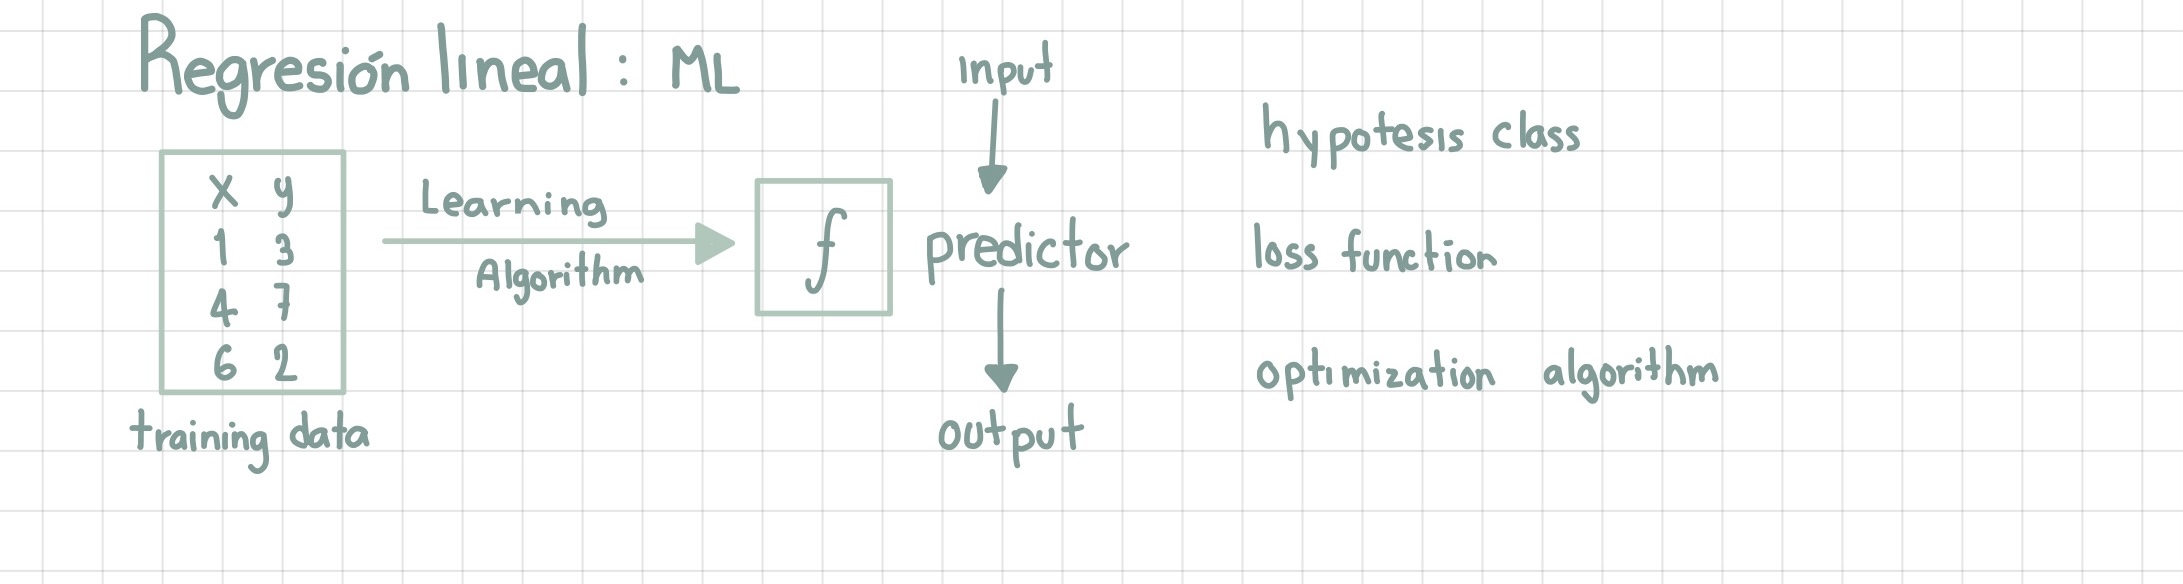 Regresión lineal : ML
x y
1 3
4 7
6 2
training data
Learning
Algorithm
f
input
predictor
output
hypotesis class
loss function
optimization algorithm